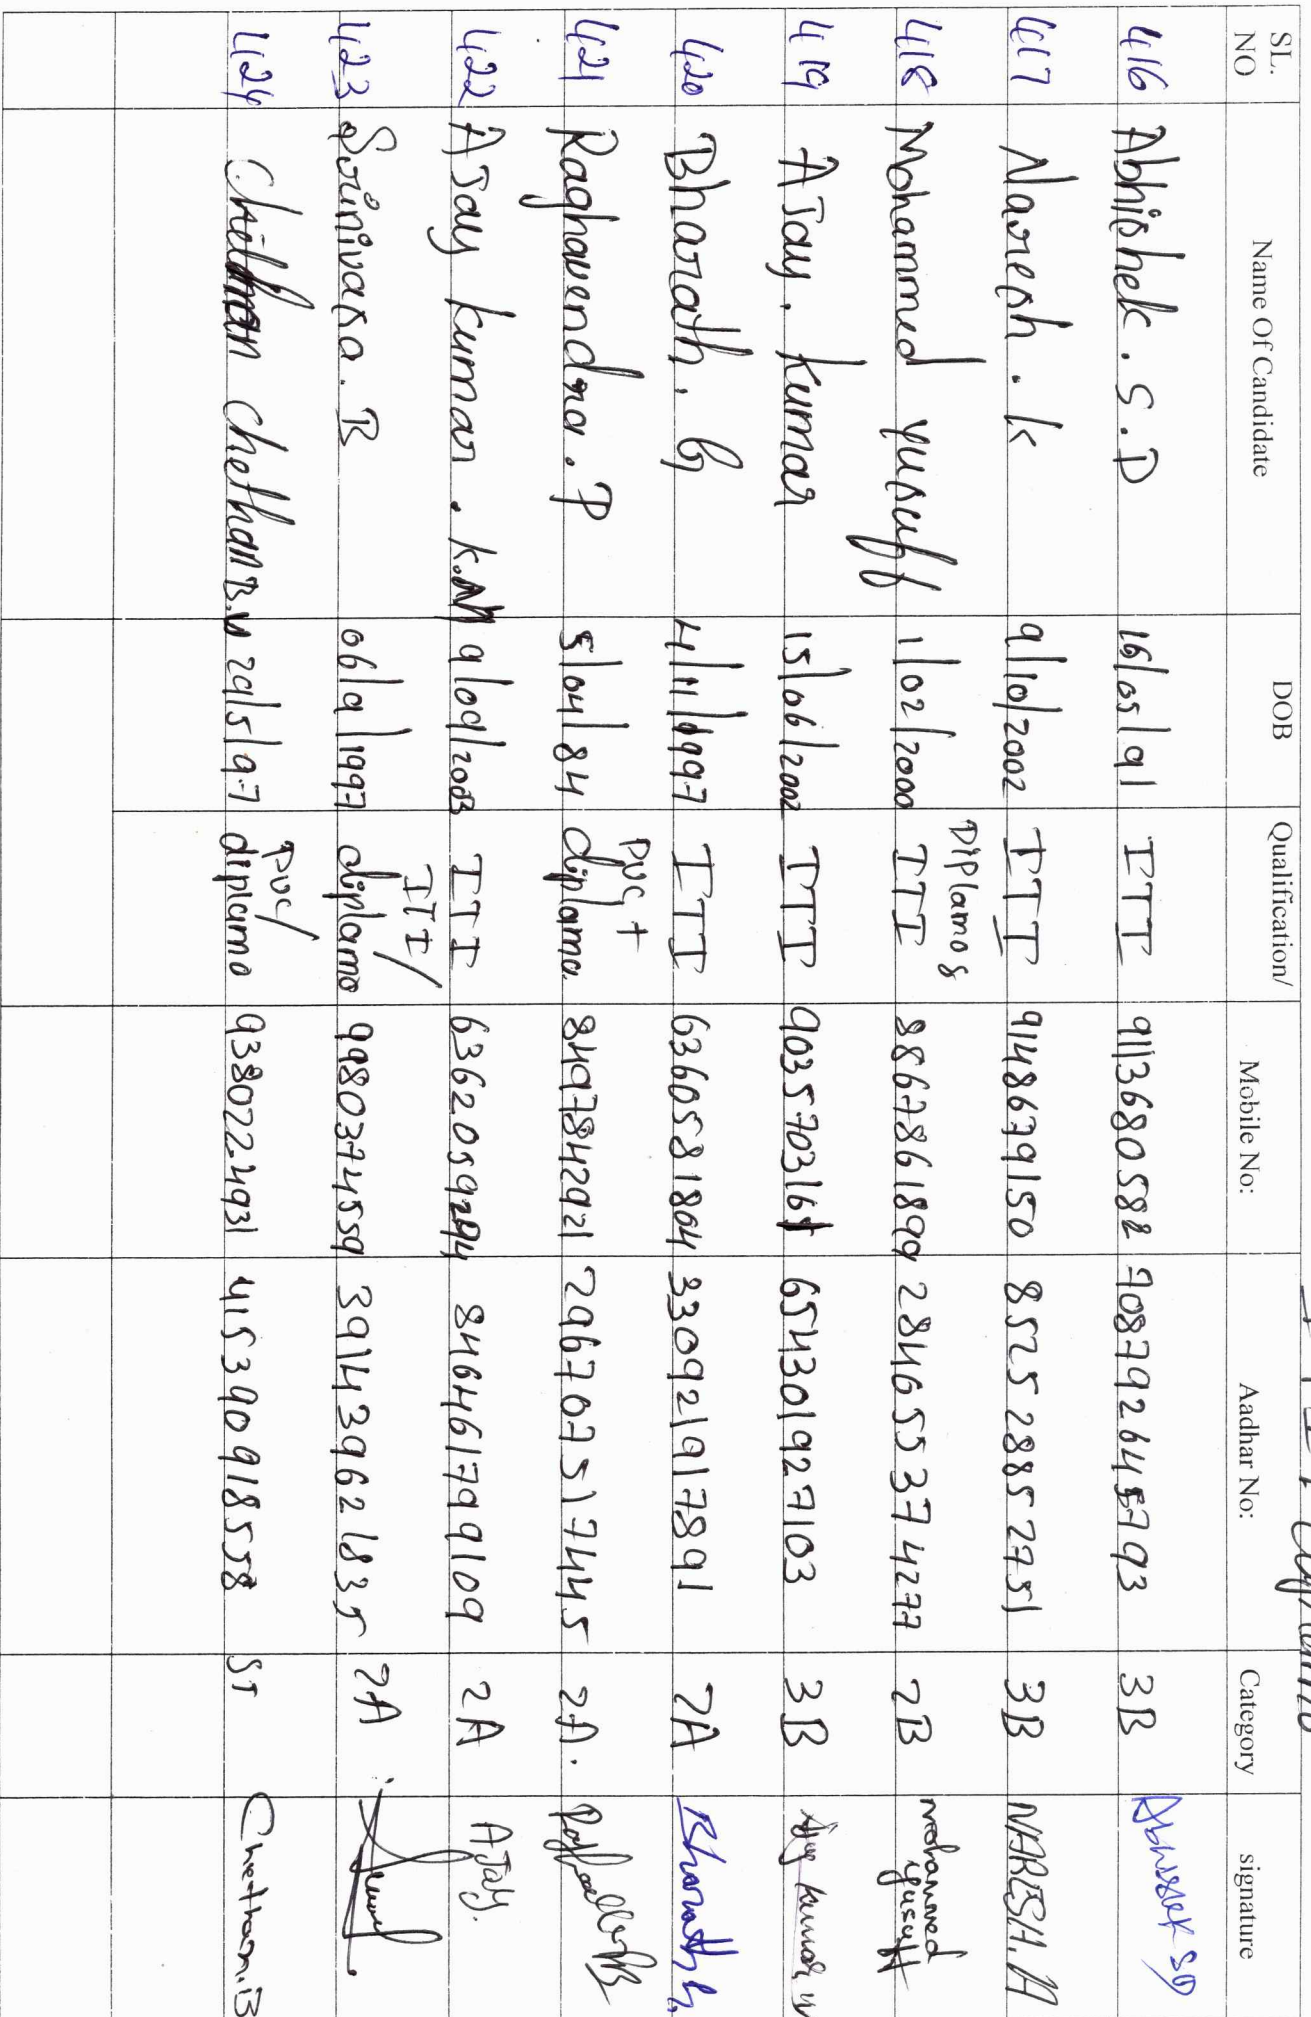 SL. NO Name Of Candidate DOB Qualification/ Mobile No: Aadhar No: Category signature
416 Abhishek . S . D 16/05/91 ITI 9113680582 708792645793 3B
417 Naresh . K 9/10/2002 ITI 9148679150 852528852751 3B NARESH.
418 Mohammed yusuff 1/02/2000 Diplamo & ITI 8867861899 284655374277 2B mohammed yusuff
419 AJay . kumar 15/06/2002 ITI 654301927103 3B
420 Bharath . G 4/11/1997 ITI 6360581804 330921917891 2A Bharath
421 Raghavendra . P 5/04/84 PUC + diplama. 8497842921 296707517445 2A.
422 AJay kumar . K.N 9/09/2003 ITI 6362059294 846461799109 2A AJay.
423 Srinivasa . R 06/9/1997 ITI / diplamo 9980374559 391439621835 2A
424 chethan B.V 29/5/97 PUC/ diplamo 9380224931 415390918558 ST Chethan.B